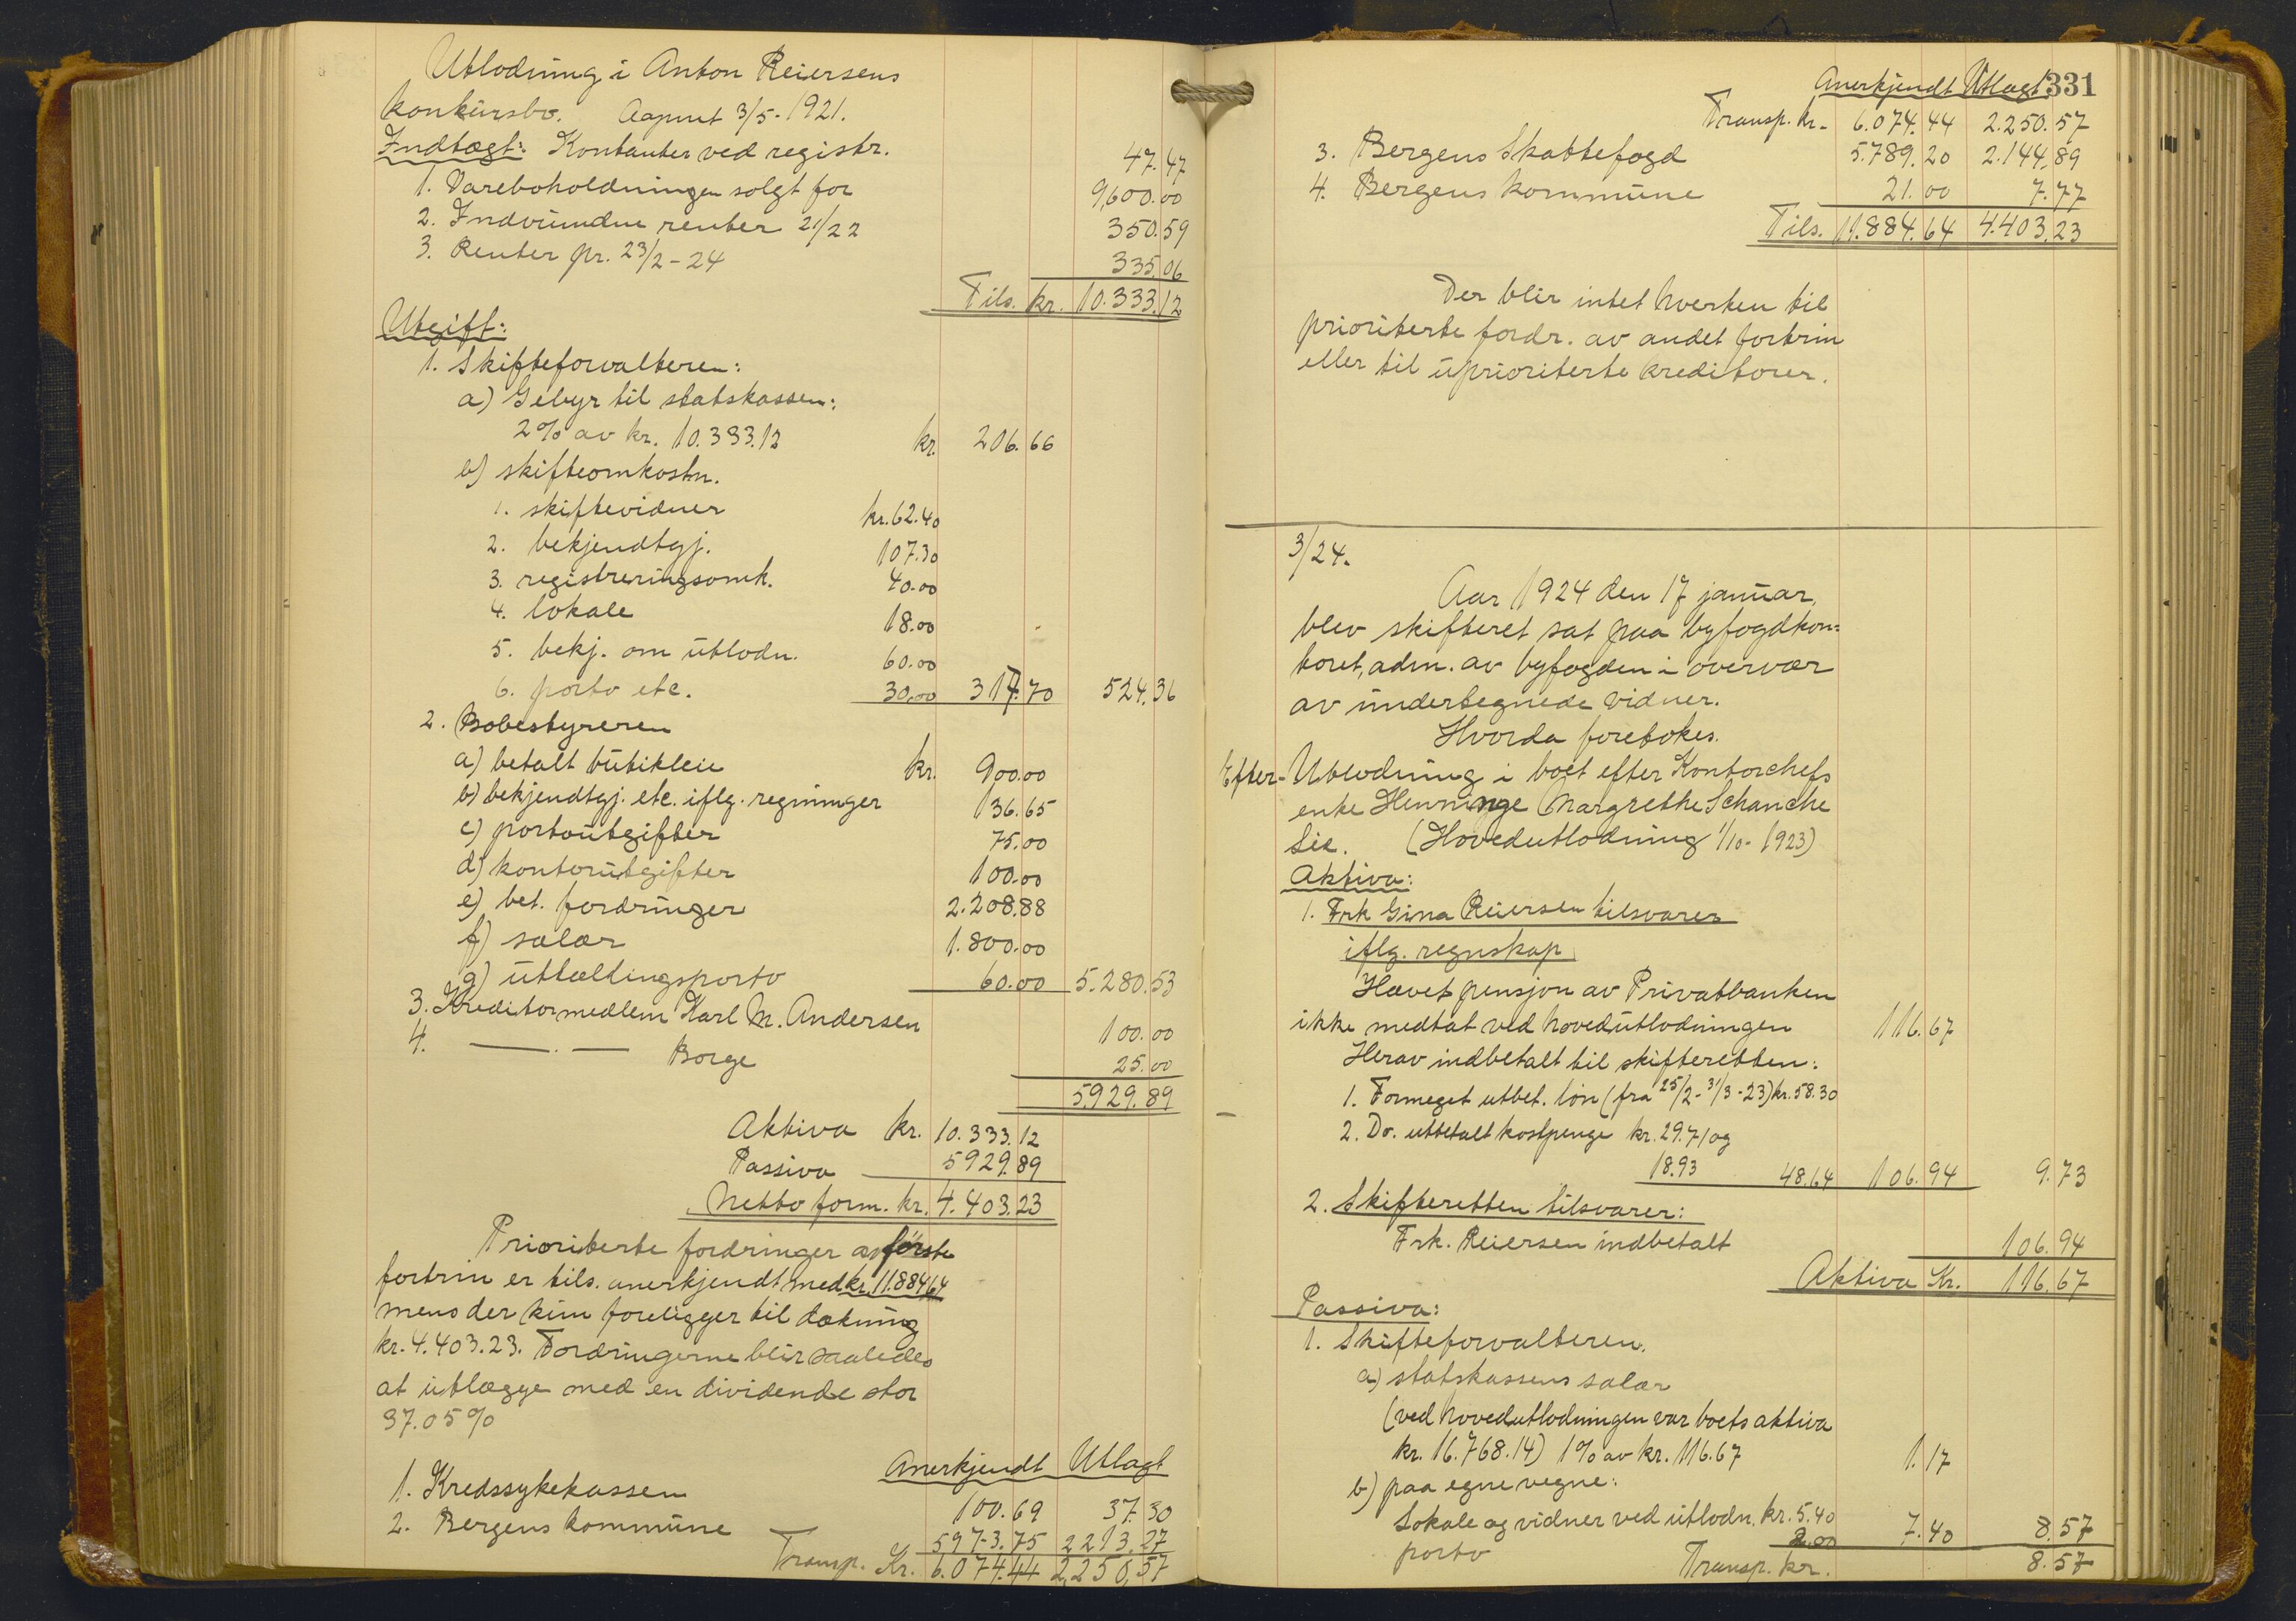 Utlodning i Anton Reiersens
konkursbo. Aapnet 3/5-1921.
Indtægt: Kontanter ved registr. 47.47
1. Varebeholdningen solgt for 9,600.00
2. Indvundne renter 21/22 350.59
3. Renter pr. 23/2-24 335.06
Tils. kr. 10.333.12
Utgift:
1. Skifteforvalteren:
a) Gebyr til statskassen:
2% av kr. 10.333.12 kr. 206.66
b) skifteomkostn.
1. skiftevidner kr. 62.40
2. bekjendtgj. 107.30
3. registreringsomk. 40.00
4. lokale 18.00
5. bekj. om utlodn. 60.00
6. porto etc. 30,00 317.70 524.36
2. Bobestyreren
a) betalt butikleie kr. 900.00
b) bekjendtgj. etc. iflg. regninger 136.65
c) portoutgifter 75.00
d) kontorutgifter 100.00
e) bet. fordringer 2.208.88
f) salær 1.800.00
g) uttællingsporto 60.00 5.280.53
3. Kreditormedlem Karl M. Andersen 100.00
4. — . — Borge 25.00
5.929.89
Aktiva kr. 10.333.12
Passiva 5929.89
Netto form. kr. 4.403.23
Prioriterte fordringer av første
fortrin er tils. anerkjendt med kr. 11.884.64
mens der kun foreligger til dækning
kr. 4.403.23. Fordringerne blir saaledes
at utlægge med en dividende stor
37.05%
Anerkjendt Utlagt
1. Kredssykekassen 100.69 37.30
2. Bergens kommune 5973.75 2213.27
Transp. Kr. 6.074.44 2,250,57
331
Anerkjendt Utlagt
Transp. kr. 6.074.44 2.250.57
3. Bergens Skattefogd 5.789.20 2.144,89
4. Bergens kommune 21.00 7.77
Tils. 11.884.64 4.403,23
Der blir intet hverken til
prioriterte fordr. av andet fortrin
eller til uprioriterte kreditorer.
3/24.
Aar 1924 den 17 januar,
blev skifteret sat paa byfogdkon=
toret, adm. av byfogden i overvær
av undertegnede vidner.
Hvorda foretokes.
Efter-Utlodning i boet efter Kontorchefs
enke Henninge Margrethe Schanche
Lie. (Hovedutlodning 1/10-1923)
Aktiva:
1. Frk Gina Reiersen tilsvarer
iflg. regnskap
Hævet pensjon av Privatbanken
ikke medtat ved hovedutlodningen 116.67
Herav indbetalt til skifteretten:
1. Formeget utbet. løn (fra 25/2-31/3-23) kr. 58.30
2. Do. utbetalt kostpenge kr. 29.71 og
18.93 48.64 106.94 9.73
2. Skifteretten tilsvarer:
Frk. Reiersen indbetalt 106.94
Aktiva Kr. 116.67
Passiva:
1. Skifteforvalteren.
a) statskassens salær
(ved hovedutlodningen var boets aktiva
kr. 16.768.14) 1% av kr. 116.67 1.17
b) paa egne vegne:
Lokale og vidner ved utlodn. kr. 5.40
porto 2.00 7.40 8.57
Transp. kr. 8.57